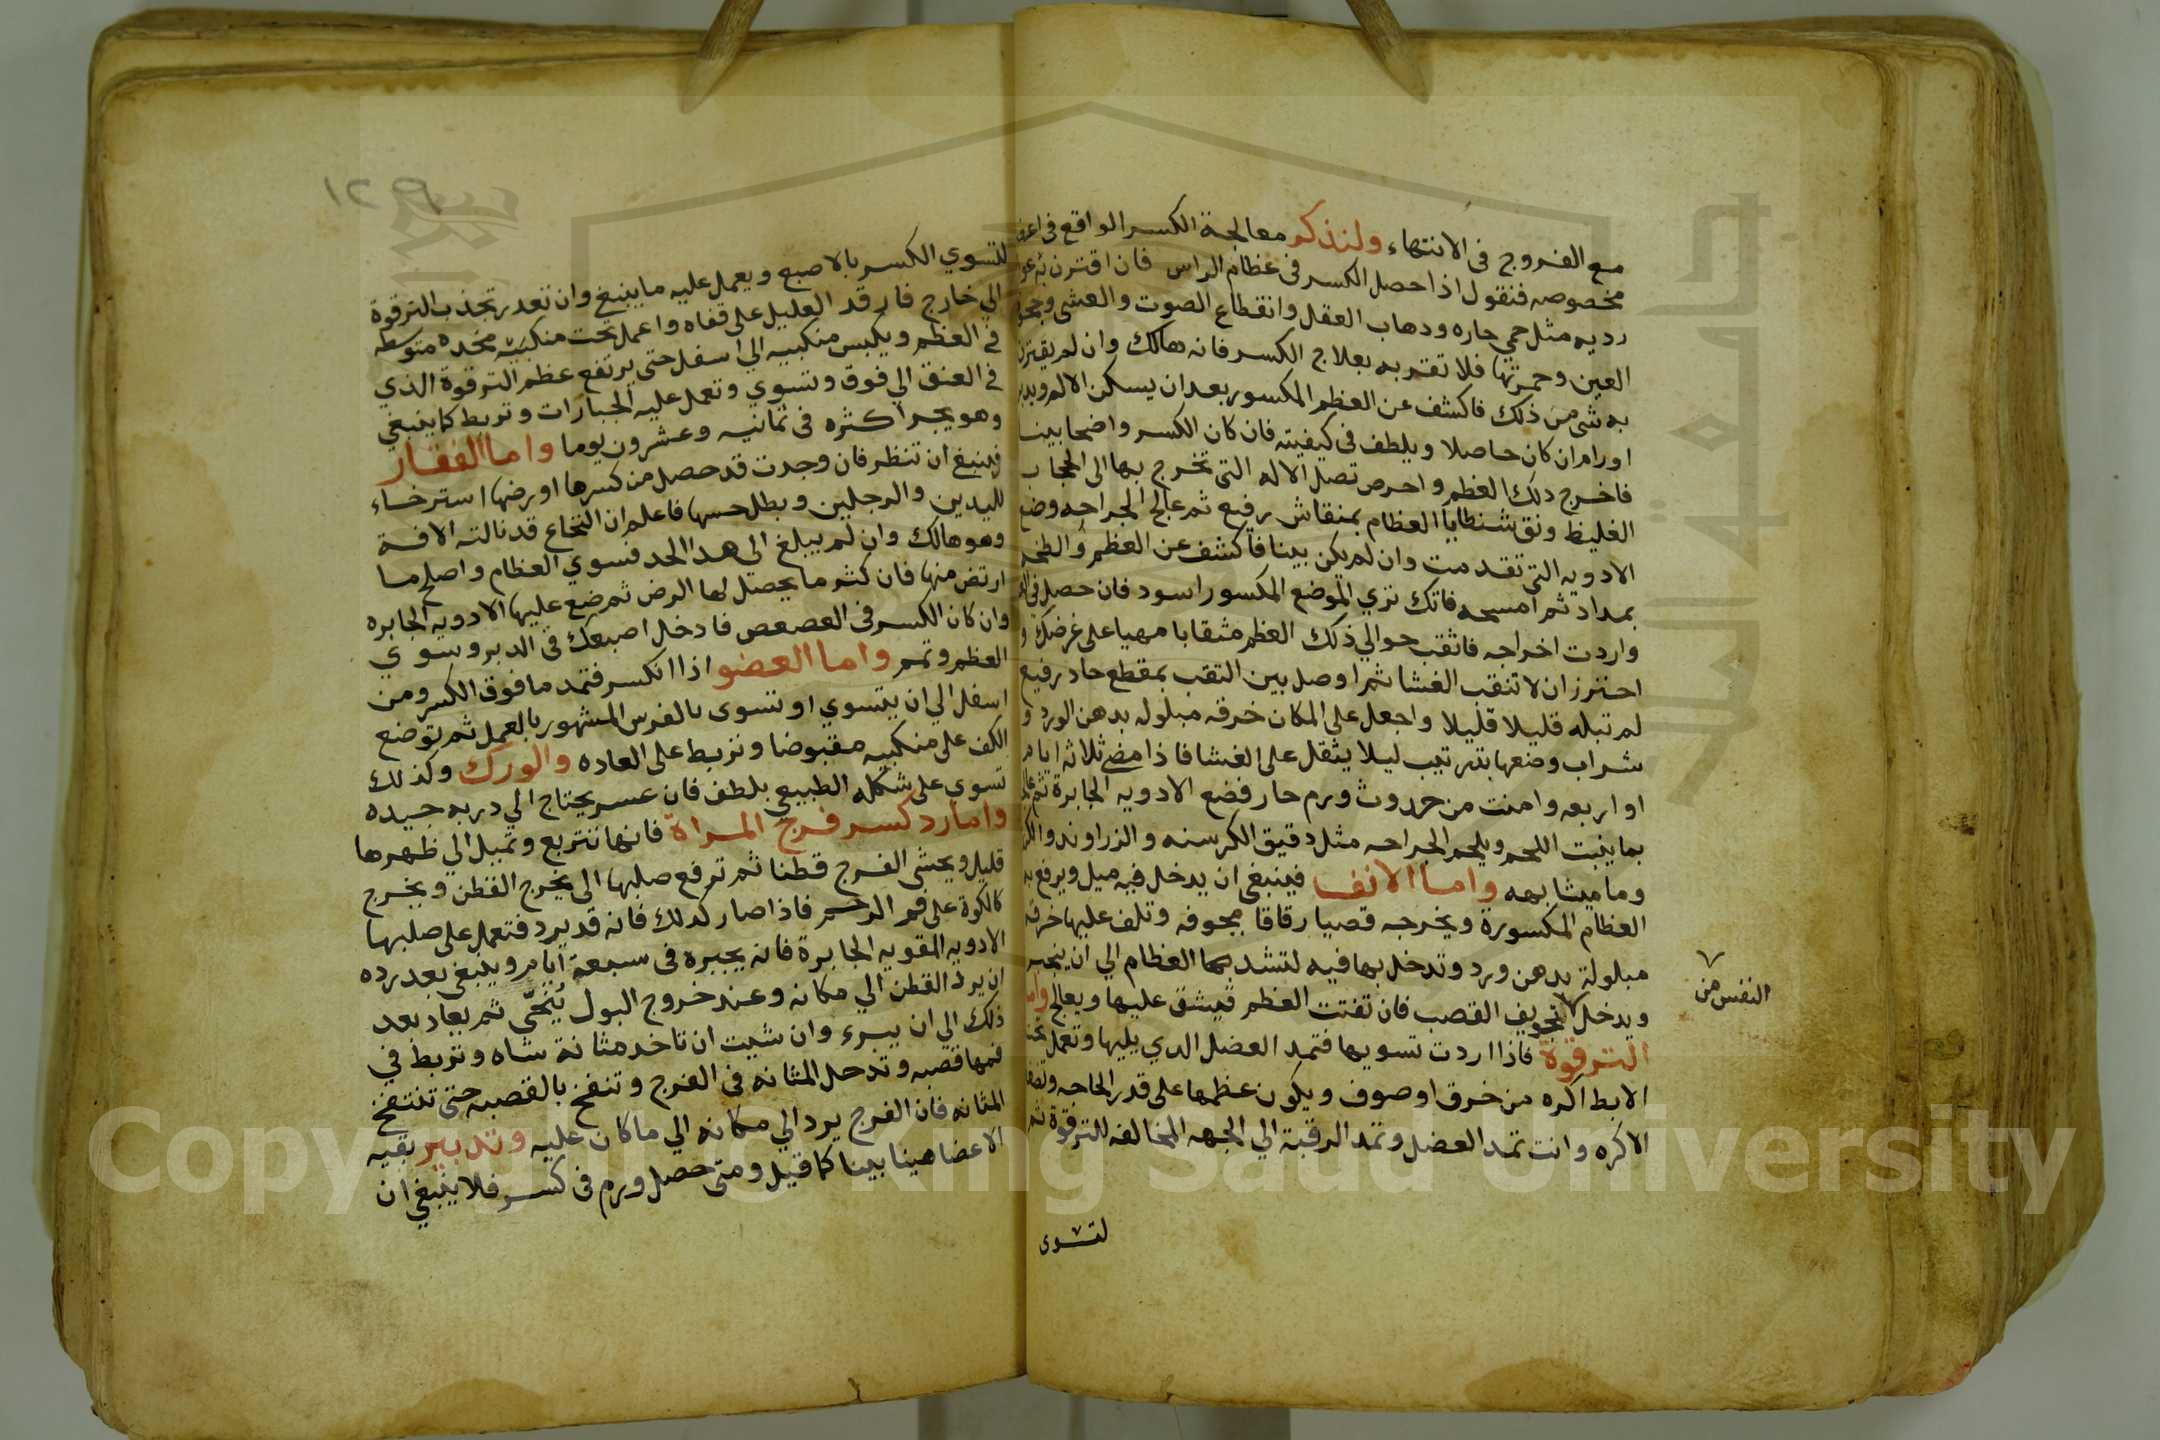 مع الفروج فى الانتهاء ولنذكر معالجة الكسر الواقع فى اعضا
مخصوصه فنقول اذا حصل الكسر فى عظام الراس فان اقترن به
رديه مثل حمي حاره ودهاب العقل وانقطاع الصوت والغشى
العين وحمرتها فلا تقربه بعلاج الكسر فانه هالك وان لم يقترن
به شى من ذلك فاكشف عن العظم المكسور بعد ان يسكن الالم
اورام ان كان حاصلا ويلطف فى كيفيته فان كان الكسر واضحا بينا
فاخرج دلك العظم واحرص تصل الاله التى تخرج بها الى الحجاب
الغليظ ونق شنظايا العظام بمنقاش رفيع ثم عالج الجراحه وضع
الادويه التي تقدمت وان لم يكن بينا فاكشف عن العظم والطخه
بمداد ثم امسحه فانك تري الموضع المكسور اسود فان حصل فى
واردت اخراجه فاثقب حوالي ذلك العظم مثقابا مهيا على غرضك
احترز ان لا تنقب الغشا ثم اوصل بين الثقب بمقطع حاد رفيع
لم تبله قليلا قليلا واجعل على المكان خرقه مبلوله بدهن الورد و
شراب وضعها بترتيب ليلا يثقل على الغشا فاذا مضى ثلاثه ايام
او اربعه وامنت من حدوث ورم حار فضع الادويه الجابرة ثم
بما ينبت اللحم ويلحم الجراحه مثل دقيق الكرسنه والزراوند
وما ميشابهه واما الانف فينبغى ان يدخل فيه ميل ويرفع به
العظام المكسورة ويخرجه قصيا رقاقا مجوفه وتلف عليها خرقه
مبلولة بدهن ورد وتدخل بها فيه لتشد بها العظام الي ان ينجبر
ويدخل تجويف القصب فان تفتت العظم فيشق عليها ويعالج واما
النفس من
الترقوة فاذا اردت تسويها فتمد العضل الدي يليها وتعمل تحت
الابط اكره من خرق او صوف ويكون عظمها على قدر الحاجه
الاكره وانت تمد العضل وتمد الرقبة الي الجهه المخالفه للترقوة ثم
لتسوى
١٢٩
للتسوي الكسر بالاصبع ويعمل عليه ما ينبغ وان تعدر تجذب الترقوة
الي خارج فارقد العليل على قفاه واعمل تحت منكبيه مخده متوسطه
فى العظم ويكبس منكبيه الي اسفل حتى يرتفع عظم الترقوة الذي
فى العنق الي فوق وتسوي وتعمل عليه الجبارات وتربط كما ينبغي
وهو يجبر اكثره فى ثمانيه وعشرون يوما واما الفقار
فينبغ ان تنظر فان وجدت قد حصل من كسرها او رضها استرخاء
لليدين والرجلين وبطل حسها فاعلم ان النخاع قد نالته الافه
وهو هالك وان لم يبلغ الى هدا الحد فسوي العظام واصلح ما
ارتض منها فان كثر ما يحصل لها الرض ثم ضع عليها الادويه الجابره
وان كان الكسر فى العصعص فادخل اصبعك فى الدبر وسوي
العظم وتمر واما العضو اذا انكسر فتمد ما فوق الكسر ومن
اسفل الي ان يتسوي او تتسوى بالفرس المشهور بالعمل ثم توضع
الكف على منكبيه مقبوضا وتربط على العاده والورك وكذلك
تسوي على شكله الطبيعي بلطف فان عسر يحتاج الي دربه جيده
واما رد كسر فرج المراة فانها تتربع وتميل الي ظهرها
قليل ويحشى الفرج قطنا ثم ترفع صلبها الى يخرج القطن ويخرج
كالكوة على فم الرحم فاذا صار كدلك فانه قد يرد فتعمل على صلبها
الادويه المقويه الجابرة فانه يجبره فى سبعة ايام وينبغى بعد رده
ان يرد القطن الي مكانه وعند خروج البول يُنحَّى ثم يعاد بعد
ذلك الي ان يبرء وان شيت ان تاخد مثانة شاه وتربط في
فمها قصبه وتدحل المثانه فى الفرج وتنفخ بالقصبه حتى تنتفخ
المثانه فان الفرج يرد الي مكانه الي ما كان عليه وتدبير بقيه
الاعضا هينا بينا كما قيل ومتى حصل ورم فى كسر فلا ينبغي ان
Copyright © King Saud University